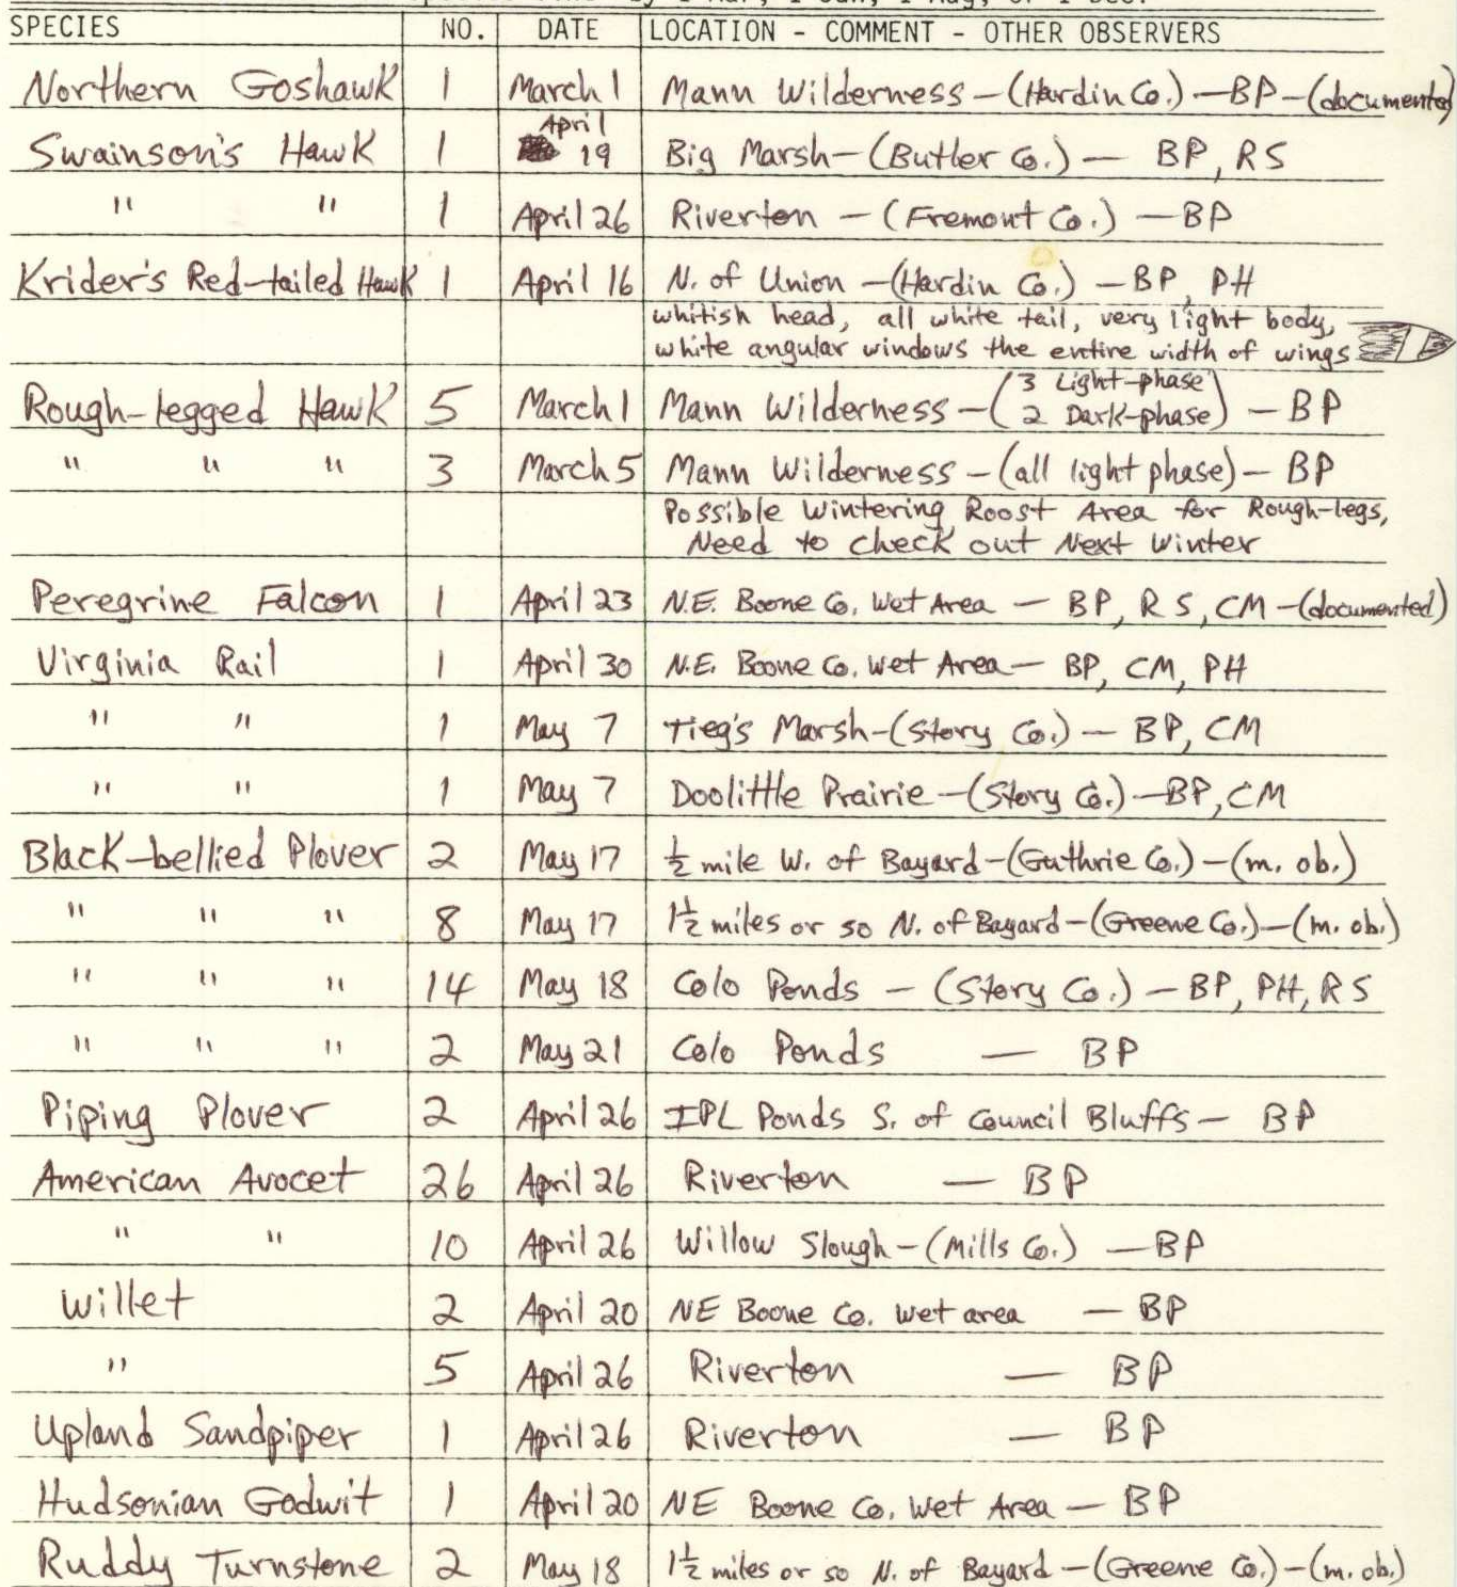 SPECIES NO. DATE LOCATION - COMMENT - OTHER OBSERVERS
Northern Goshawk 1 March 1 Mann Wilderness - (Hardin Co.) - BP - (documented)
Swainson's Hawk 1 April 19 Big Marsh - (Butler Co.) - BP, RS
" " 1 April 26 Riverton - (Fremont Co.) - BP
Krider's Red-tailed Hawk 1 April 16 N. of Union - (Hardin Co.) - BP, PH
whitish head, all white tail, very light body,
white angular windows the entire width of wings
Rough-legged Hawk 5 March 1 Mann Wilderness - (3 Light-phase 2 Dark-phase) - BP
" " " 3 March 5 Mann Wilderness - (all light phase) - BP
Possible Wintering Roost Area for Rough-legs,
Need to check out Next Winter
Peregrine Falcon 1 April 23 N.E. Boone Co. Wet Area - BP, RS, CM - (documented)
Virginia Rail 1 April 30 N.E. Boone Co. Wet Area - BP, CM, PH
" " 1 May 7 Tieg's Marsh - (Story Co.) - BP, CM
" " 1 May 7 Doolittle Prairie - (Story Co.) - BP, CM
Black-bellied Plover 2 May 17 ½ mile W. of Bayard - (Guthrie Co.) - (m. ob.)
" " " 8 May 17 1½ miles or so N. of Bayard - (Greene Co.) - (m. ob.)
" " " 14 May 18 Colo Ponds - (Story Co.) - BP, PH, RS
" " " 2 May 21 Colo Ponds - BP
Piping Plover 2 April 26 IPL Ponds S. of Council Bluffs - BP
American Avocet 26 April 26 Riverton - BP
" " 10 April 26 Willow Slough - (Mills Co.) - BP
Willet 2 April 20 NE Boone Co. Wet area - BP
" 5 April 26 Riverton - BP
Upland Sandpiper 1 April 26 Riverton - BP
Hudsonian Godwit 1 April 20 NE Boone Co. Wet Area - BP
Ruddy Turnstone 2 May 18 1½ miles or so N. of Bayard - (Greene Co.) - (m. ob.)